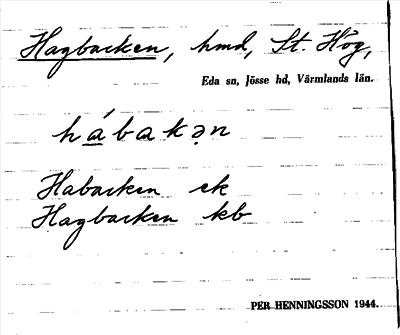 Hagbacken, hmd, St. Hög,
Eda sn, Jösse hd, Värmlands län.
hábakən
Habacken ek
Hagbacken kb
PER HENNINGSSON 1944.